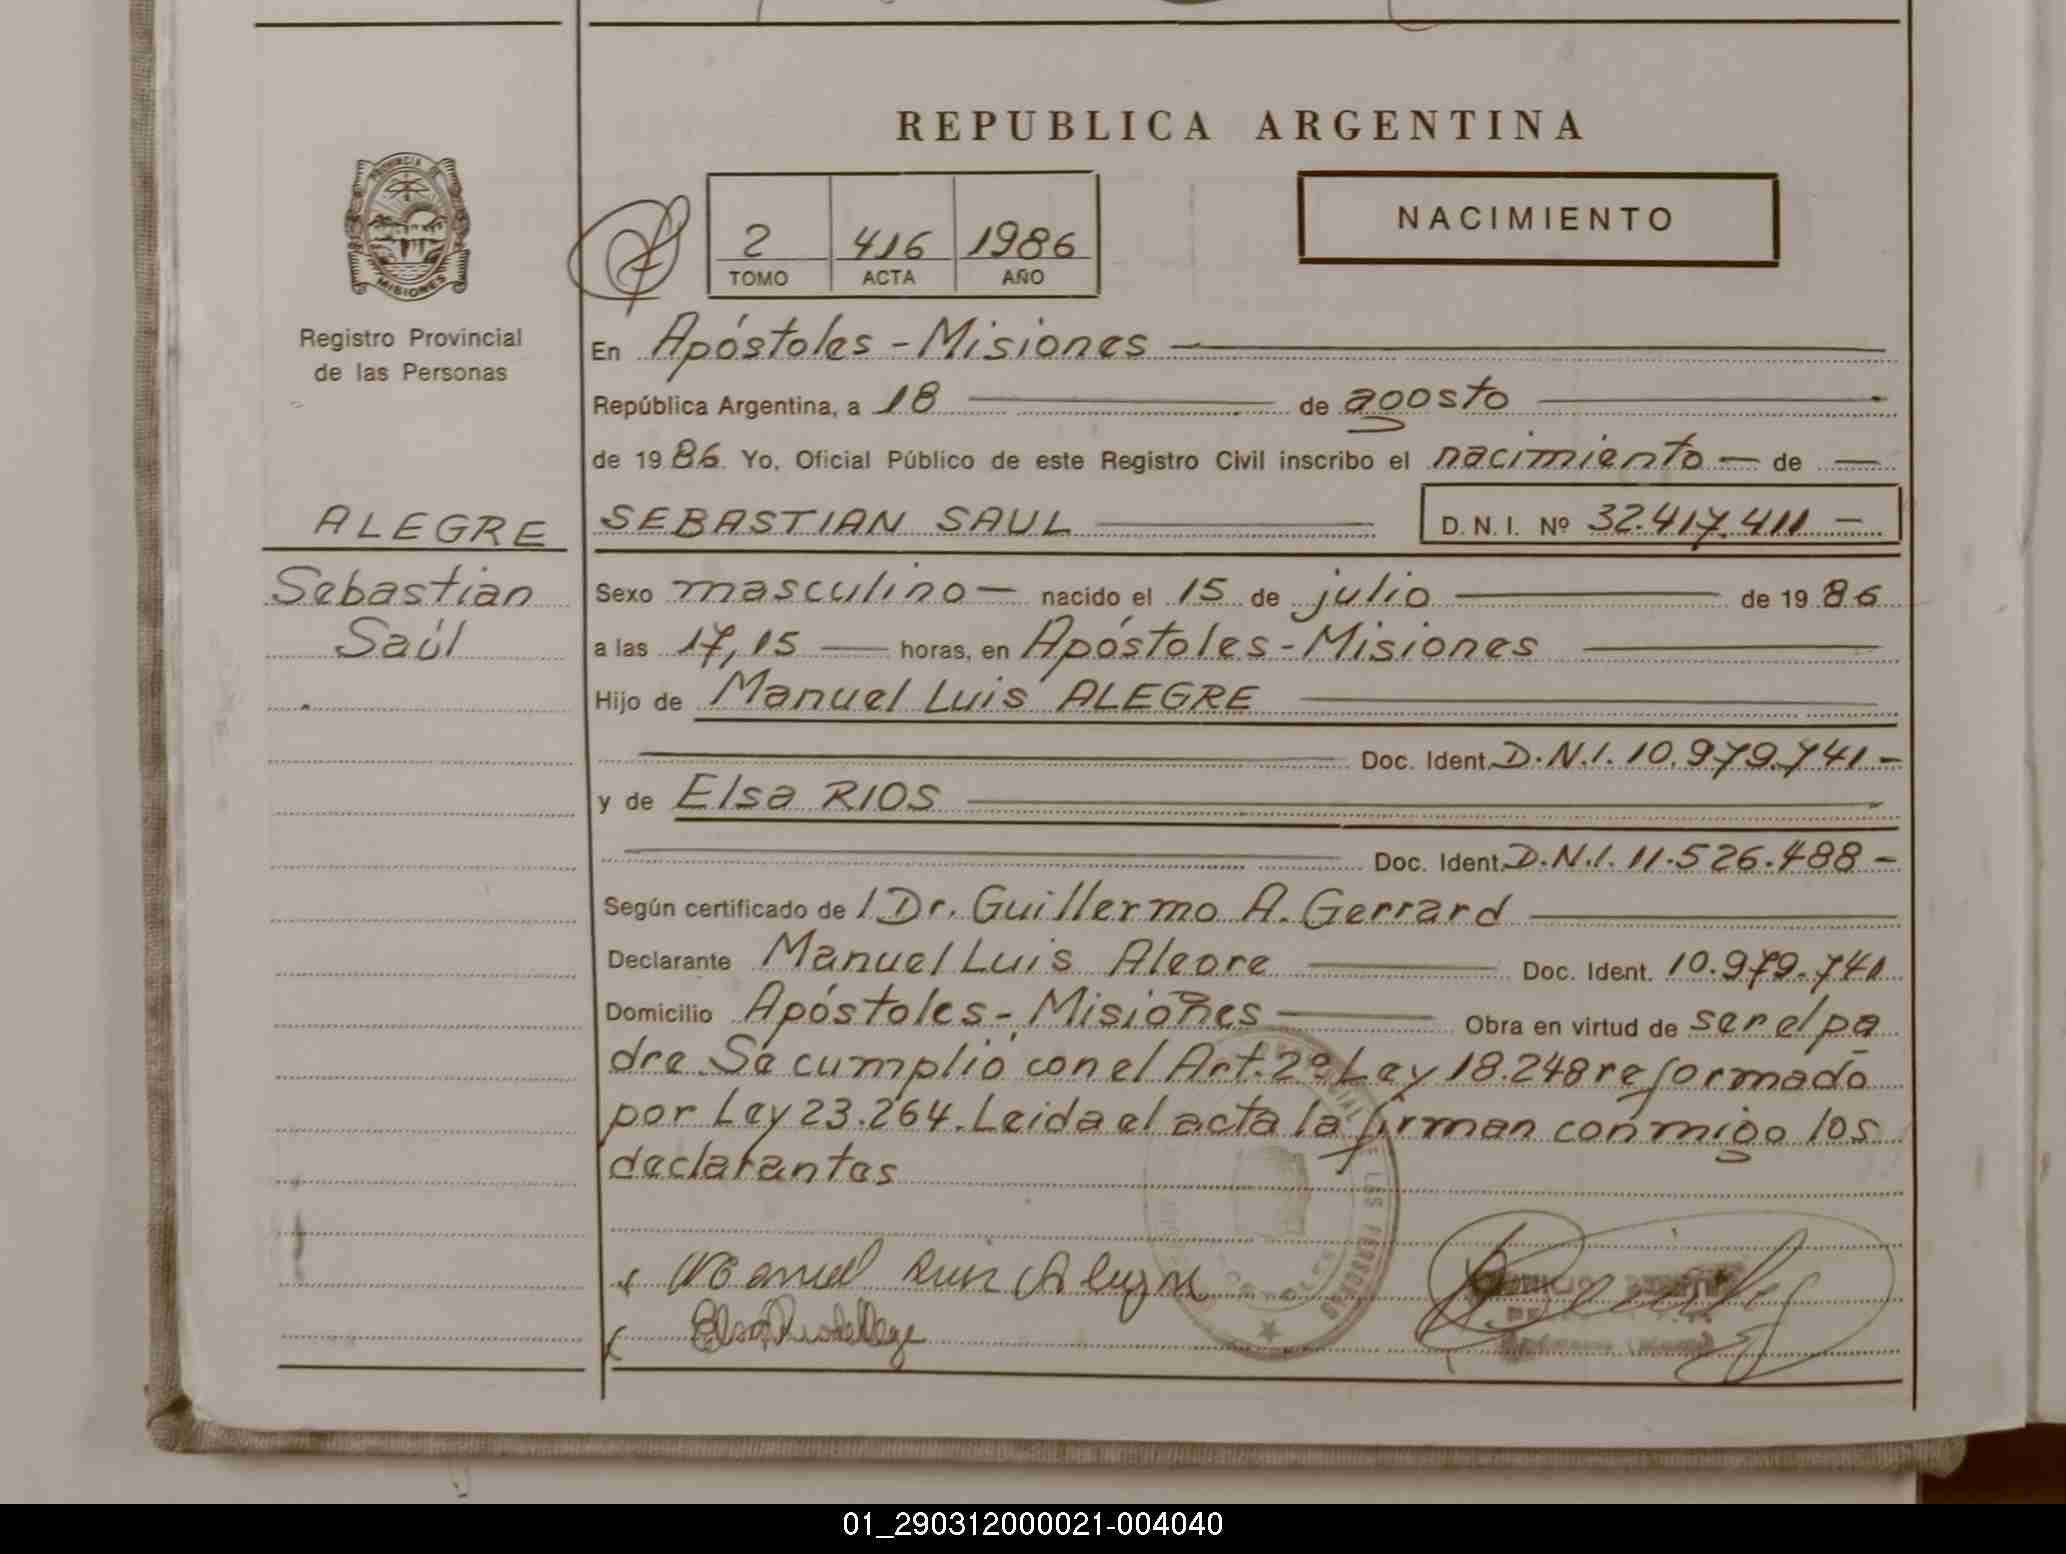 REPUBLICA ARGENTINA
PROVINCIA DE
MISIONES
Registro Provincial
de las Personas
2 416 1986
TOMO ACTA AÑO
NACIMIENTO
En Apóstoles - Misiones
República Argentina, a 18 de agosto
de 1986. Yo, Oficial Público de este Registro Civil inscribo el nacimiento — de —
ALEGRE
SEBASTIAN SAUL D.N.I. Nº 32.417.411 —
Sebastian
Saúl
Sexo masculino — nacido el 15 de julio de 1986
a las 17,15 — horas, en Apóstoles - Misiones
Hijo de Manuel Luis ALEGRE
Doc. Ident. D.N.I. 10.979.741 -
y de Elsa RIOS
Doc. Ident. D.N.I. 11.526.488 -
Según certificado de / Dr. Guillermo A. Gerrard
Declarante Manuel Luis Alegre Doc. Ident. 10.979.741
Domicilio Apóstoles - Misiones Obra en virtud de ser el pa
dre. Se cumplió con el Art. 2º Ley 18.248 reformado
por Ley 23.264. Leida el acta la firman conmigo los
declarantes
Manuel Luis Alegre
01_290312000021-004040